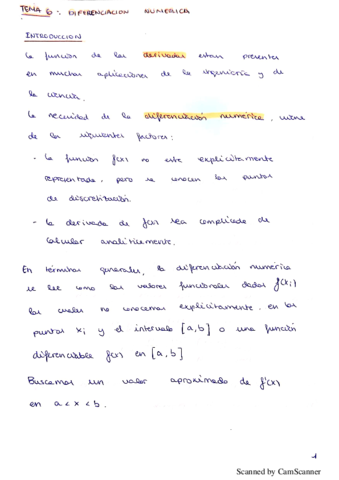 TEMA 6: DIFERENCIACION NUMERICA
INTRODUCCION
La función de las derivadas estan presentes
en muchas aplicaciones de la ingeniería y de
la ciencia.
La necesidad de la diferenciación numérica, viene
de los siguientes factores:
- La función f(x) no este explícitamente
representada, pero se conocen los puntos
de discretización.
- La derivada de f(x) sea complicada de
calcular analíticamente.
En términos generales, la diferenciación numérica
se lee como los valores funcionales dados f(xi)
los cuales no conocemos explícitamente en los
puntos xi y el intervalo [a,b] o una función
diferenciable f(x) en [a,b]
Buscamos un valor aproximado de f'(x)
en a<x<b.
1
Scanned by CamScanner